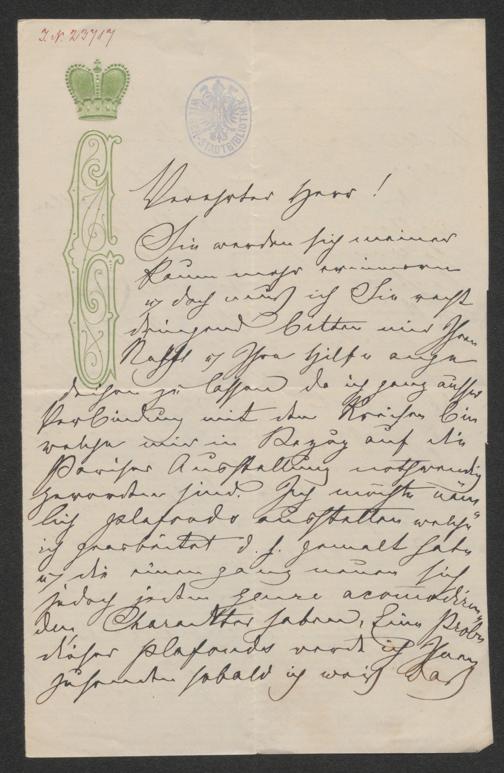 I. N. 213717
WIENER STADTBIBLIOTHEK
Verehrter Herr!
Sie werden sich meiner
kaum mehr erinnern
u doch muß ich Sie recht
dringend bitten mir Ihren
Rath u Ihre Hilfe ange
deihen zu lassen da ich ganz ausser
Verbindung mit den Kreisen bin
welche mir in Bezug auf die
Pariser Ausstellung nothwendig
geworden sind. Ich möchte näm
lich Plafonds ausstellen welche
ich gearbeitet d. h. gemalt habe
u die einen ganz neuen sich
jedoch jedem genre acomodiren
den Charakter haben. Eine Probe
dieser Plafonds werde ich Ihnen
zusenden sobald ich weiß daß